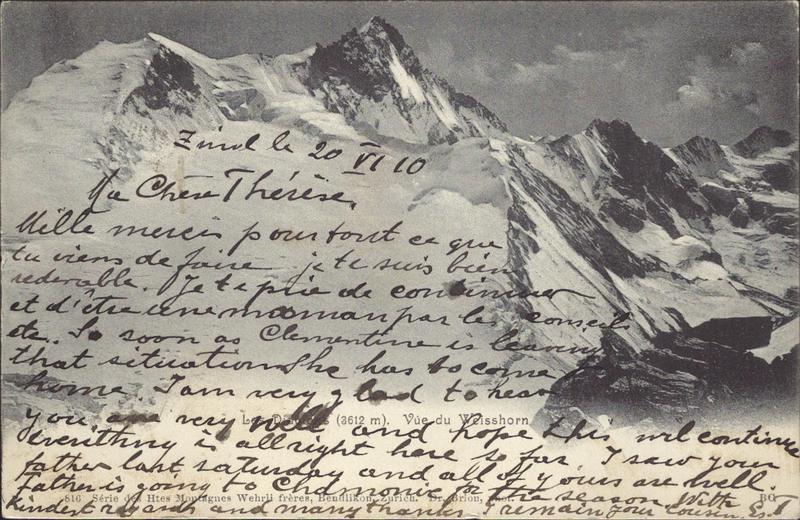 Zinal le 20 VI 10
Ma Chère Thérèse,
Mille mercis pour tout ce que
tu viens de faire je te suis bien
rederable. Je te prie de continuer
et d'être une maman par les conseils
etc. So soon as Clementine is leaving
that situation she has to come
home. I am very glad to hear
you are very well and hope this will continue
everithny is allright here so far. I saw your
father last saturday and all of yours are well.
father is going to Chamonix for the season With
kindest regards and many thanks I remain your cousin Es. T
Les (3612 m). Vue du Weisshorn
816 Série des Htes Montagnes Wehrli frères, Bendlikon, Zurich. Dr. Brion, phot.